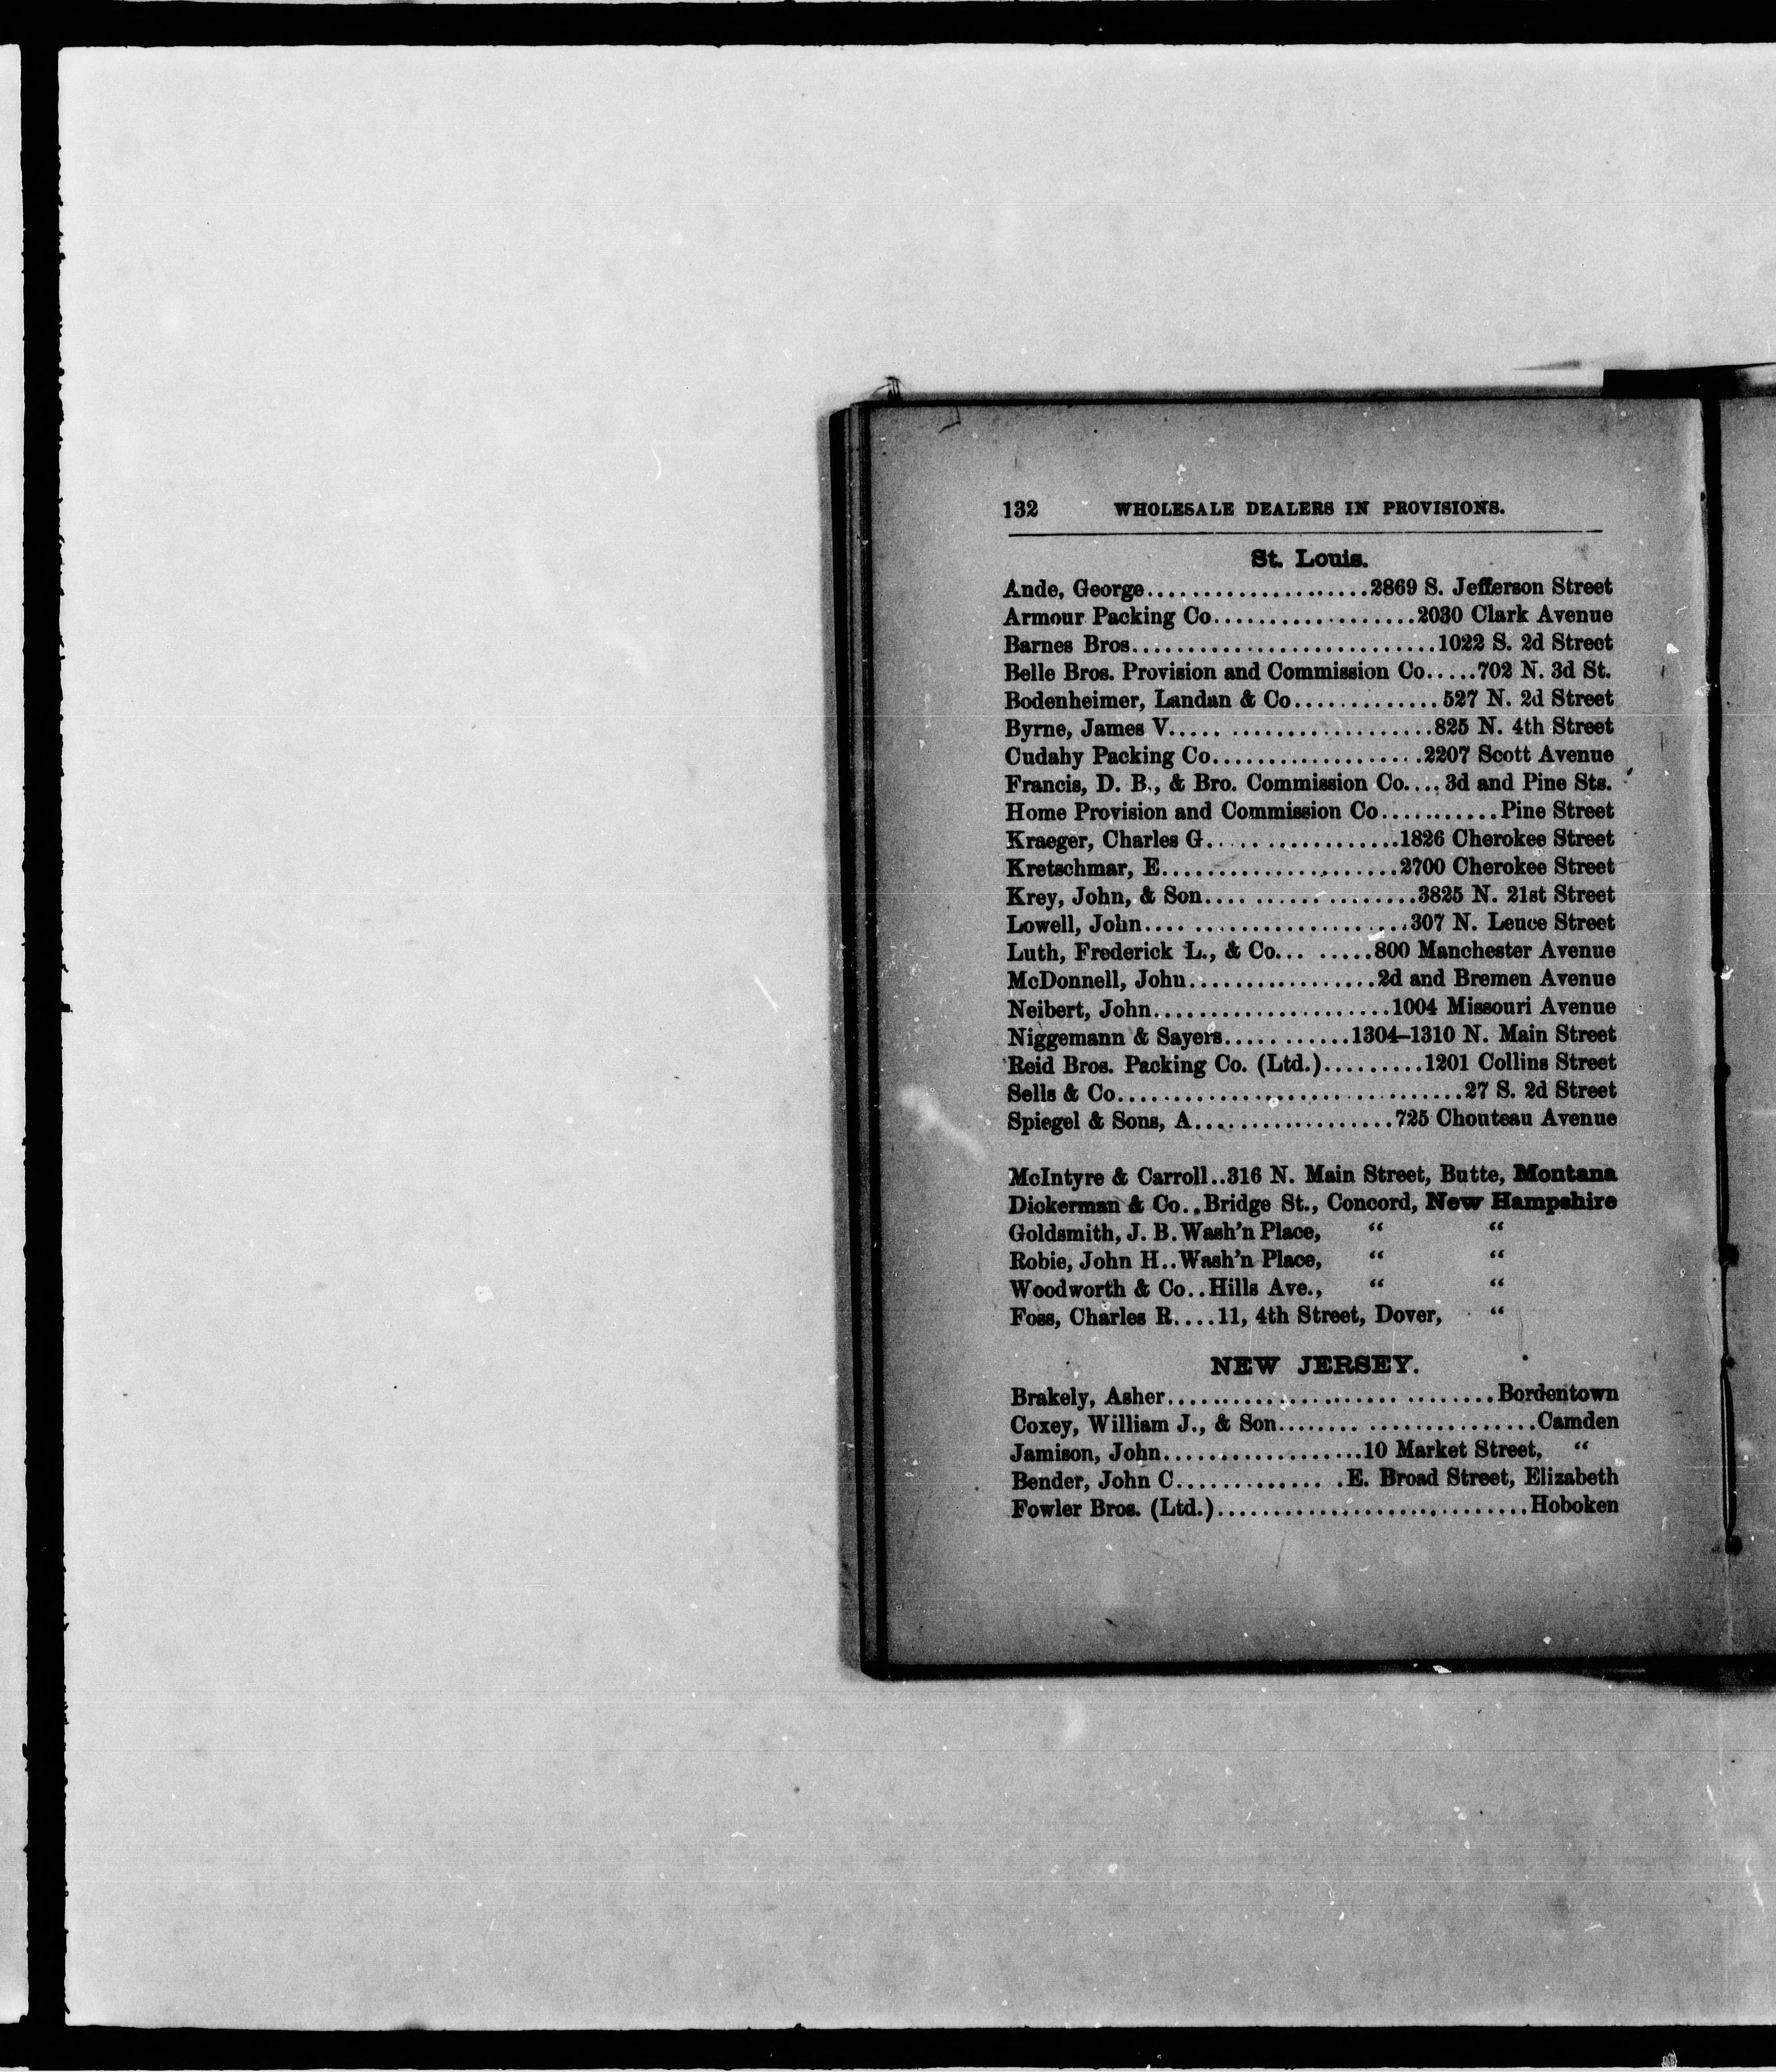 132 WHOLESALE DEALERS IN PROVISIONS.
St. Louis.
Ande, George....................2869 S. Jefferson Street
Armour Packing Co..................2030 Clark Avenue
Barnes Bros...........................1022 S. 2d Street
Belle Bros. Provision and Commission Co.....702 N. 3d St.
Bodenheimer, Landan & Co.............527 N. 2d Street
Byrne, James V..... ..................825 N. 4th Street
Cudahy Packing Co...................2207 Scott Avenue
Francis, D. B., & Bro. Commission Co....3d and Pine Sts.
Home Provision and Commission Co...........Pine Street
Kraeger, Charles G.... ............1826 Cherokee Street
Kretschmar, E.....................2700 Cherokee Street
Krey, John, & Son.... ..............3825 N. 21st Street
Lowell, John.... ...................307 N. Leuce Street
Luth, Frederick L., & Co... .....800 Manchester Avenue
McDonnell, John.................2d and Bremen Avenue
Neibert, John.....................1004 Missouri Avenue
Niggemann & Sayers...........1304–1310 N. Main Street
Reid Bros. Packing Co. (Ltd.).........1201 Collins Street
Sells & Co...............................27 S. 2d Street
Spiegel & Sons, A..................725 Chouteau Avenue
McIntyre & Carroll..316 N. Main Street, Butte, Montana
Dickerman & Co..Bridge St., Concord, New Hampshire
Goldsmith, J. B. Wash'n Place, “ “
Robie, John H..Wash'n Place, “ “
Woodworth & Co..Hills Ave., “ “
Foss, Charles R....11, 4th Street, Dover, “
NEW JERSEY.
Brakely, Asher..................... ........Bordentown
Coxey, William J., & Son....... ...............Camden
Jamison, John..................10 Market Street, “
Bender, John C............. .E. Broad Street, Elizabeth
Fowler Bros. (Ltd.)............................Hoboken